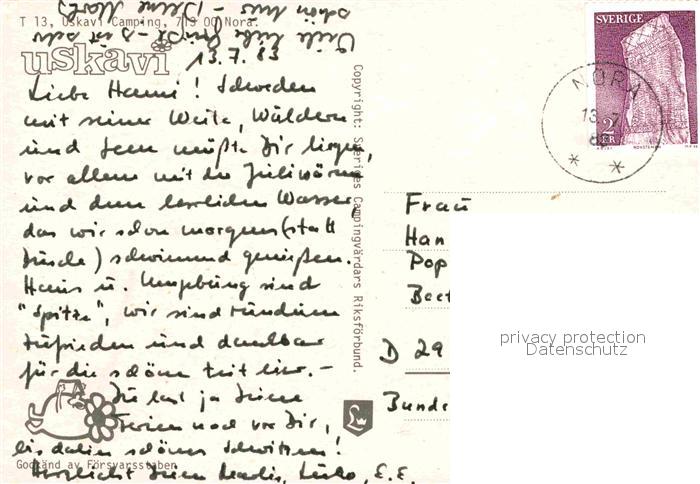 T 13, Uskavi Camping, 713 00 Nora.
schön hier - Deine Marlis
Viele liebe Grüße - s ist sehr
uskavi
13.7.83
Liebe Hanni! Schweden
mit seiner Weite, Wäldern
und Seen müßte Dir liegen,
vor allem mit der Juliwärme
und dem herrlichen Wasser,
das wir schon morgens (statt
Dusche) schwimmend genießen.
Haus u. Umgebung sind
"Spitze", wir sind rundum
zufrieden und dankbar
für die schöne Zeit hier. -
Du hast ja Deine
Ferien noch vor Dir,
bis dahin schönes Schwitzen!
Godkänd av Försvarsstaben
Herzlichst Deine
Copyright: Sveriges Campingvärdars Riksförbund.
SVERIGE
NORA
13 7
8
2
Frau
Han
Pop
Beet
D 29
Bunde
privacy protection
Datenschutz